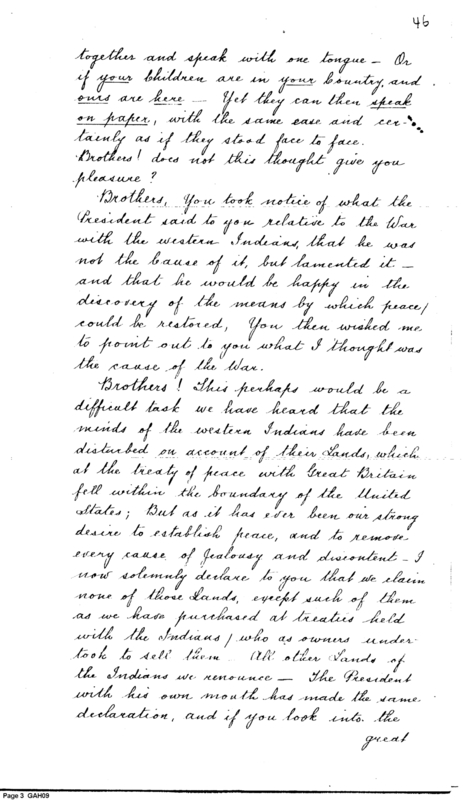 46
together and speak with one tongue - Or
if your Children are in your Country, and
ours are here - Yet they can then speak
on paper, with the same ease and cer-
tainly as if they stood face to face.
Brothers! does not this thought give you
pleasure?
Brothers, You took notice of what the
President said to you relative to the War
with the western Indians, that he was
not the Cause of it, but lamented it -
and that he would be happy in the
discovery of the means by which peace/
could be restored, You then wished me
to point out to you what I thought was
the cause of the War.
Brothers! This perhaps would be a
difficult task we have heard that the
minds of the western Indians have been
disturbed on account of their Lands, which
at the treaty of peace with Great Britain
fell within the boundary of the United
States; But as it has ever been our strong
desire to establish peace, and to remove
every cause of Jealousy and discontent - I
now solemnly declare to you that we claim
none of those Lands, except such of them
as we have purchased at treaties held
with the Indians/ who as owners under-
took to sell them. All other Lands of
the Indians we renounce - The President
with his own mouth has made the same
declaration, and if you look into the
great
Page 3 GAH09